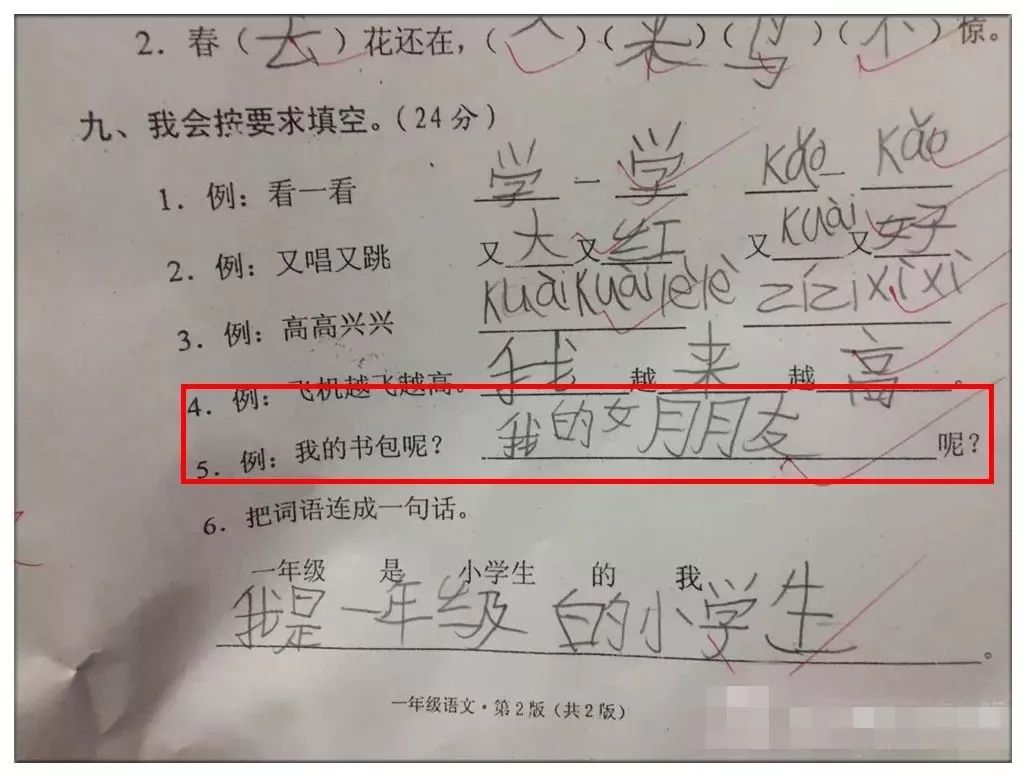 2. 春(去)花还在,(人)(来)(鸟)(不)惊。
九、我会按要求填空。(24分)
1. 例: 看一看 学一学 kǎo一kǎo
2. 例: 又唱又跳 又大又红 又kuài又好
3. 例: 高高兴兴 kuàikuàilèlè zǐzǐxìxì
4. 例: 飞机越飞越高。 我越来越高。
5. 例: 我的书包呢? 我的女朋友呢?
6. 把词语连成一句话。
一年级 是 小学生 的 我
我是一年级的小学生。
一年级语文·第2版(共2版)